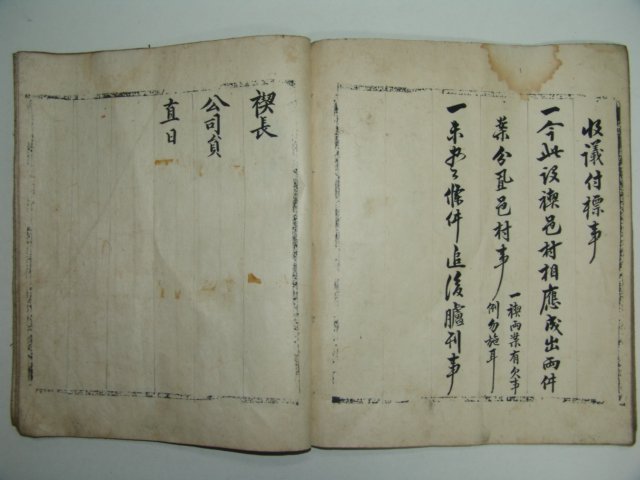 收議付標事
一今此設禊邑村相應成出兩件
業分置邑村事
一禊兩業有欠事
例勿施耳
一未盡條件追後臚列事
禊長
公司負
直日